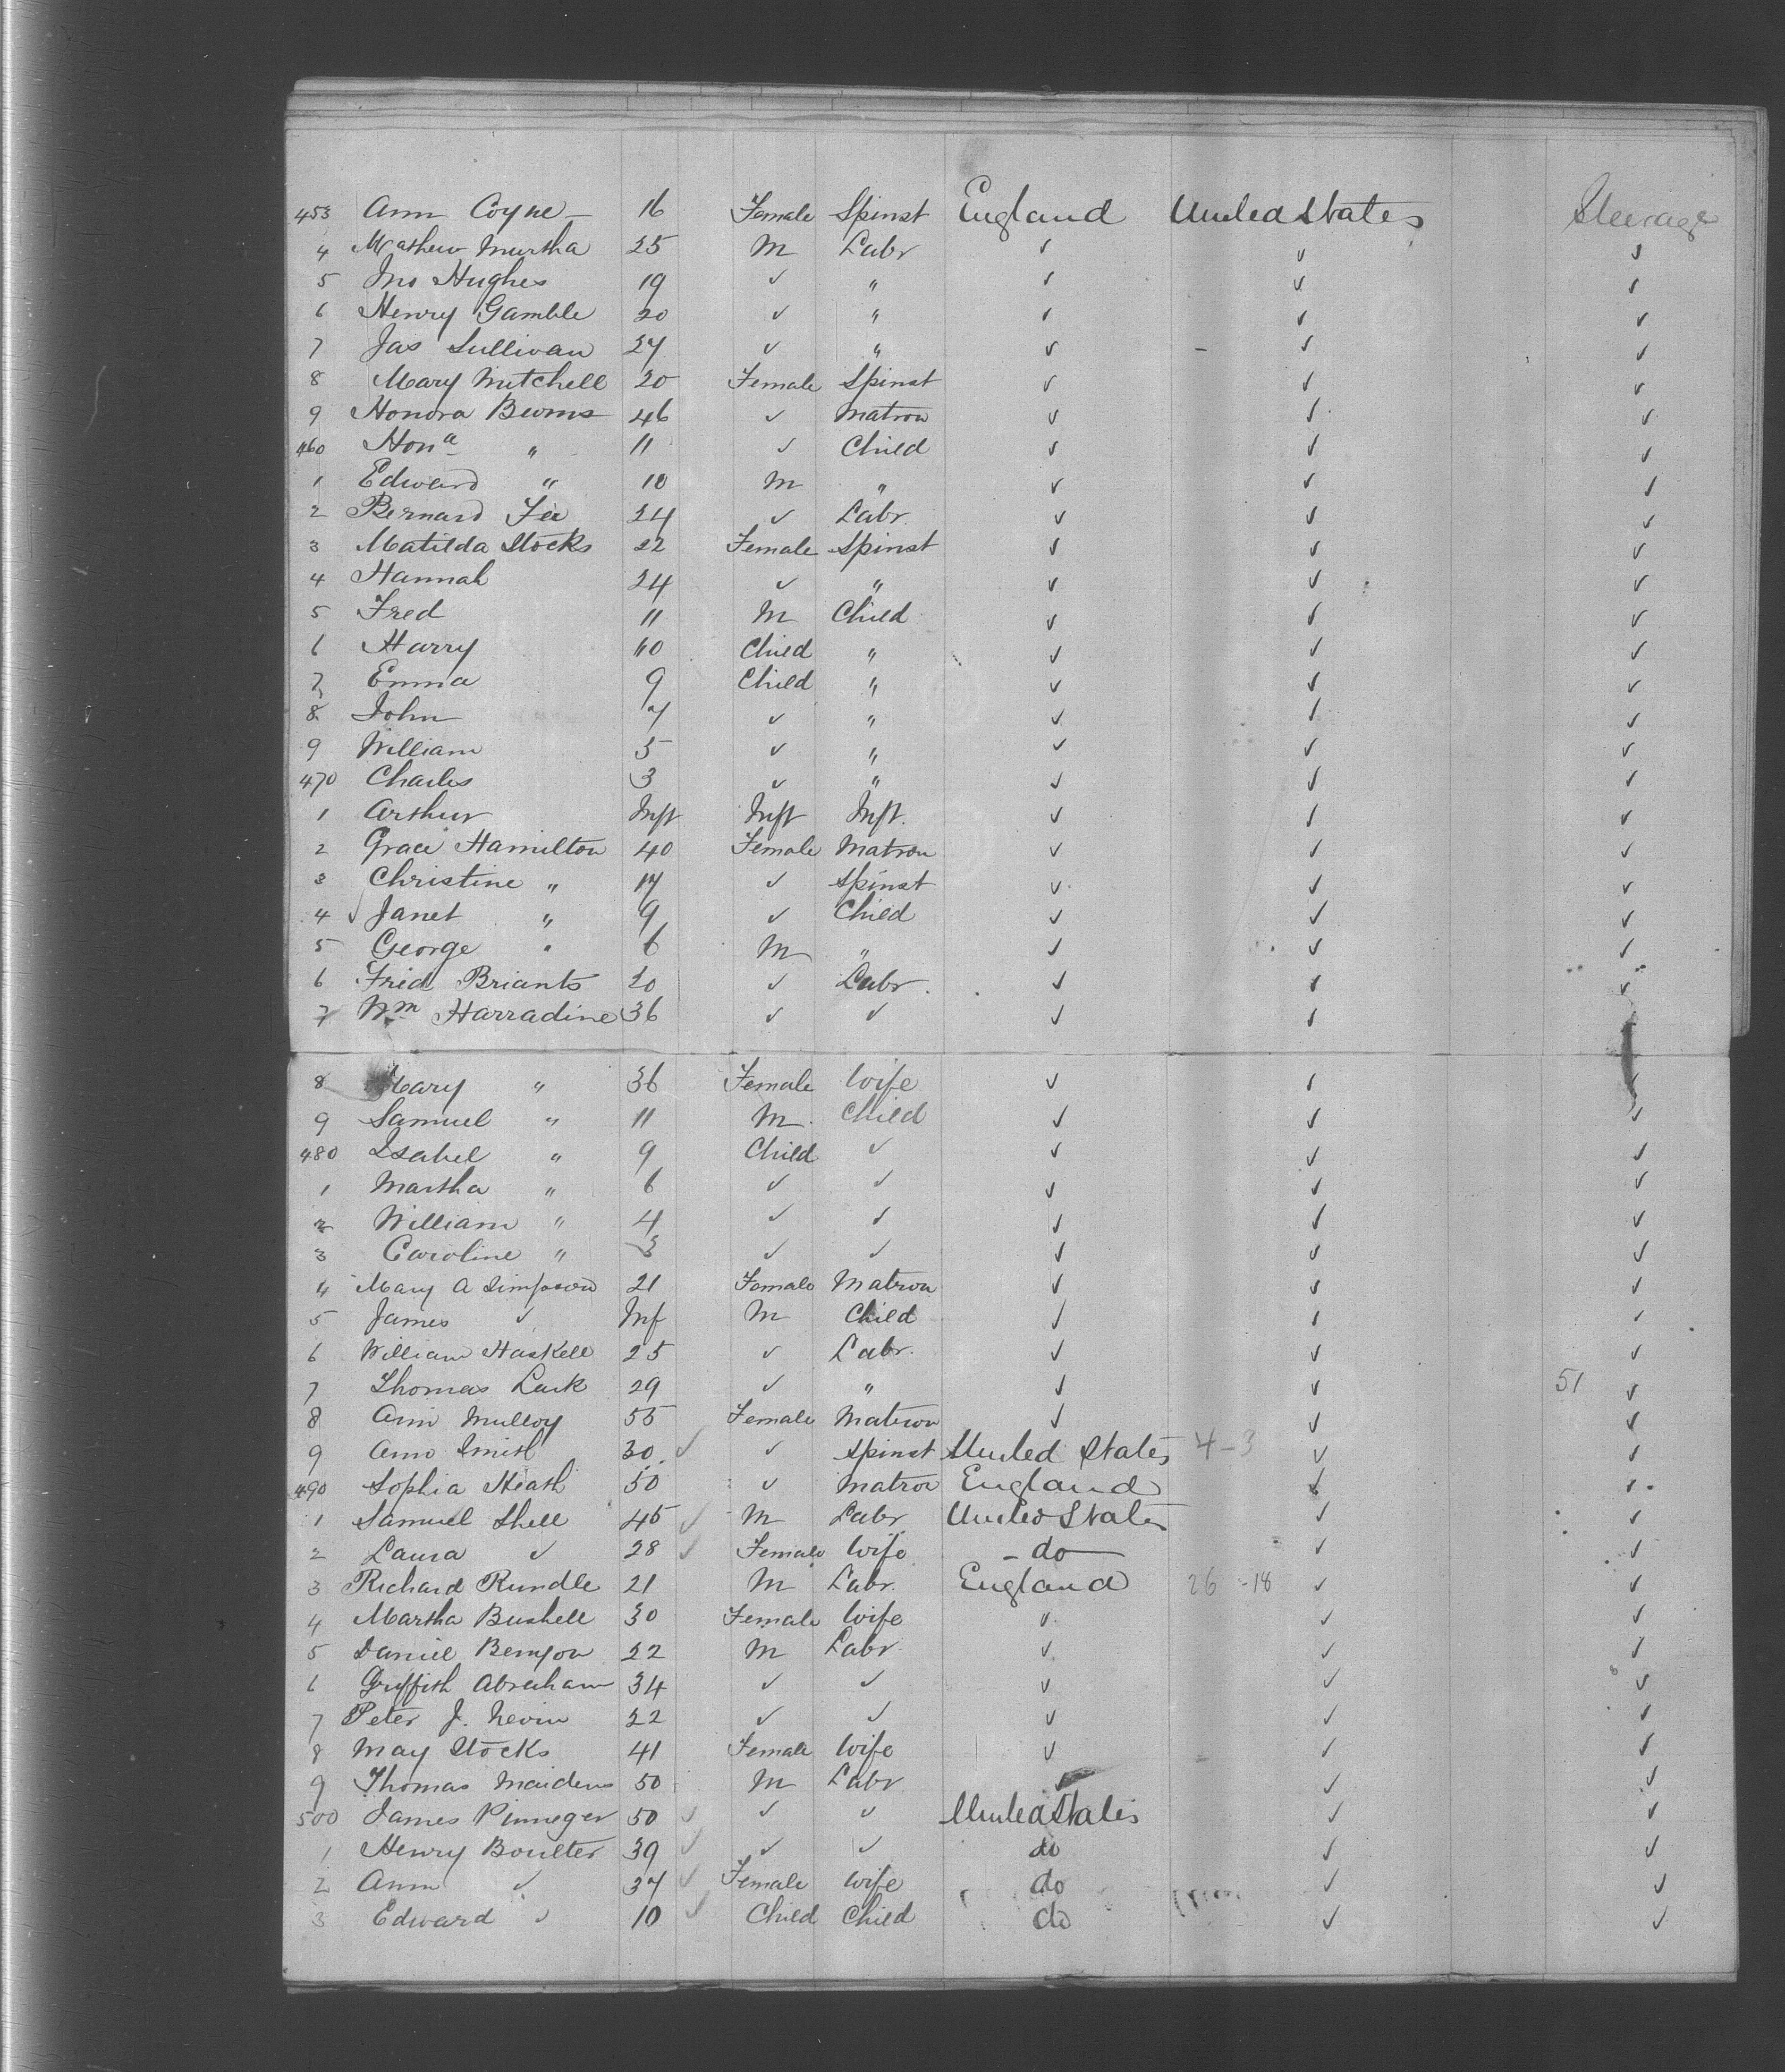 453 Ann Coyne 16 Female Spinst England United States Steerage
4 Mathew Murtha 25 M Labr ✓ ✓ ✓
5 Jno Hughes 19 ✓ " ✓ ✓ ✓
6 Henry Gamble 20 ✓ " ✓ ✓ ✓
7 Jas Sullivan 27 ✓ " ✓ ✓ ✓
8 Mary Mitchell 20 Female Spinst ✓ ✓ ✓
9 Honora 46 ✓ Matron ✓ ✓ ✓
460 Honª " 11 ✓ Child ✓ ✓ ✓
1 Edward " 10 M " ✓ ✓ ✓
2 Bernard Fee 24 ✓ Labr. ✓ ✓ ✓
3 Matilda Stocks 22 Female Spinst ✓ ✓ ✓
4 Hannah 24 ✓ " ✓ ✓ ✓
5 Fred 11 M Child ✓ ✓ ✓
6 Harry 10 Child " ✓ ✓ ✓
7 Emma 9 Child " ✓ ✓ ✓
8 John 7 ✓ " ✓ ✓ ✓
9 William 5 ✓ " ✓ ✓ ✓
470 Charles 3 ✓ " ✓ ✓ ✓
1 Arthur Inft Inft Inft. ✓ ✓ ✓
2 Grace Hamilton 40 Female Matron ✓ ✓ ✓
3 Christine " 17 ✓ Spinst ✓ ✓ ✓
4 ✓ Janet " 9 ✓ Child ✓ ✓ ✓
5 George " 6 M " ✓ ✓ ✓
6 Fred Briants 20 ✓ Labr. ✓ ✓ ✓
7 Wm Harradine 36 ✓ ✓ ✓ ✓
8 Mary " 36 Female Wife ✓ ✓ ✓
9 Samuel " 11 M. Child ✓ ✓ ✓
480 Isabel " 9 Child ✓ ✓ ✓ ✓
1 Martha " 6 ✓ ✓ ✓ ✓ ✓
2 William " 4 ✓ ✓ ✓ ✓ ✓
3 Caroline " 3 ✓ ✓ ✓ ✓ ✓
4 Mary A Simpson 21 Female Matron ✓ ✓ ✓
5 James ✓ Inf M Child ✓ ✓ ✓
6 William Haskell 25 ✓ Labr. ✓ ✓ ✓
7 Thomas 29 ✓ " ✓ ✓ 51 ✓
8 Ann Mulloy 55 Female Matron ✓ ✓ ✓
9 Ann Smith 30. ✓ ✓ Spinst United States 4-3 ✓ ✓
490 Sophia Heath 50 ✓ Matron England ✓ ✓
1 Samuel Shell 45 ✓ M Labr United States ✓ ✓
2 Laura ✓ 28 ✓ Female Wife do ✓ ✓
3 Richard Rundle 21 M Labr. England 26 -18 ✓ ✓
4 Martha Bushell 30 Female Wife ✓ ✓ ✓
5 Daniel Benyon 22 M Labr. ✓ ✓ ✓
6 Griffith Abraham 34 ✓ ✓ ✓ ✓ ✓
7 Peter J. Nevin 22 ✓ ✓ ✓ ✓ ✓
8 May Stocks 41 Female Wife ✓ ✓ ✓
9 Thomas Maidens 50 M Labr ✓ ✓ ✓
500 James Pinneger 50 ✓ ✓ ✓ United States ✓ ✓
1 Henry Boulter 39 ✓ ✓ ✓ do ✓ ✓
2 Ann ✓ 37 ✓ Female Wife do ✓ ✓
3 Edward ✓ 10 ✓ Child Child do ✓ ✓